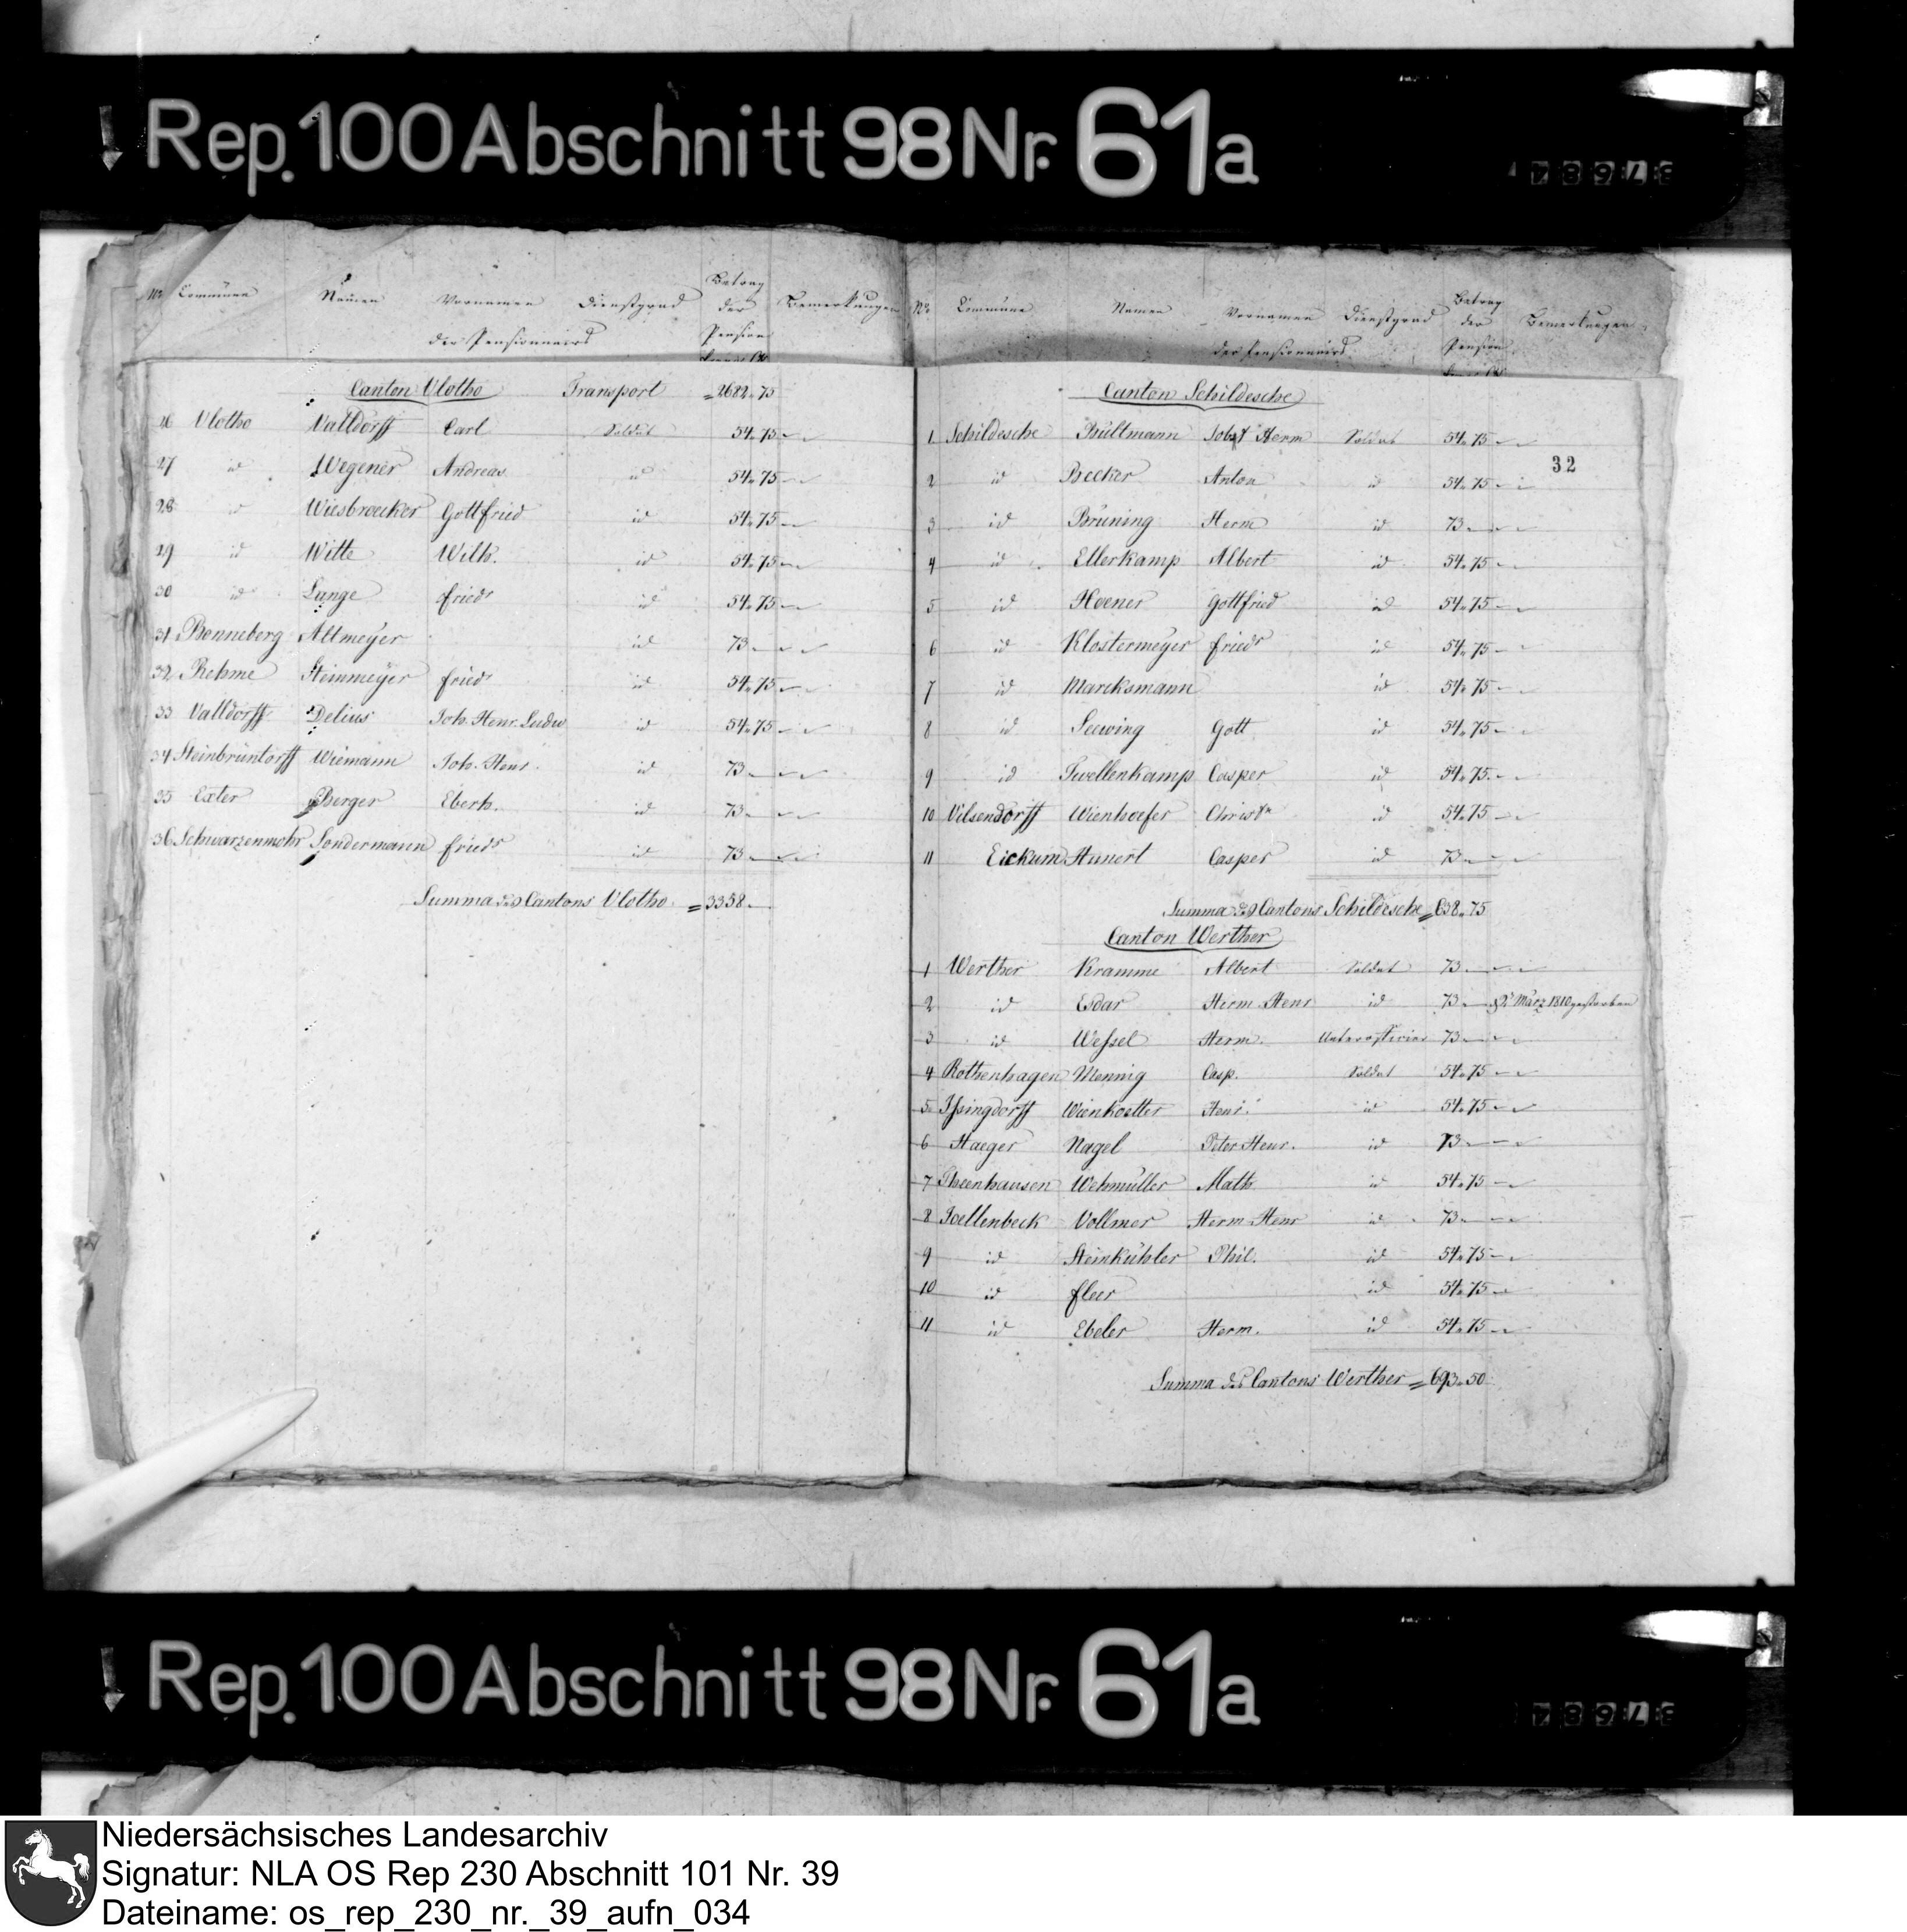 Rep. 100 Abschnitt 98 Nr. 61a
37684
No Commüne Namen Vornamen Dienstgrad Betrag der Pension Bemerkungen
der Pensionnairs
Canton Vlotho Transport = 2682. 75
26 Vlotho Valldorff Carl Soldat 54. 75
27 id Wegener Andreas id 54. 75
28 id Wiesbroecker Gottfried id 54. 75
29 id Witte Wilh. id 54. 75
30 id Lange friedr id 54. 75
31 Bonneberg Altmeyer id 73
32 Rehme Steinmeyer friedr id 54. 75
33 Valldorff Delius Joh. Henr. Ludw id 54. 75
34 Steinbrüntorff Wiemann Joh. Henr. id 73
35 Exter Berger Eberh. id 73
36 Schwarzenmohr Sondermann friedr id 73
Summa des Cantons Vlotho = 3358
No Commüne Namen Vornamen Dienstgrad Betrag der Pension Bemerkungen
der Pensionnairs
Canton Schildesche
1 Schildesche Bültmann Jobst Herm Soldat 54. 75
32
2 id Becker Anton id 54. 75
3 id Brüning Herm id 73
4 id Ellerkamp Albert id 54. 75
5 id Hoener Gottfried id 54. 75
6 id Klostermeyer friedr id 54. 75
7 id Marcksmann id 54. 75
8 id Seewing Gott id 54. 75
9 id Twellenkamp Casper id 54. 75
10 Vilsendorff Wienhoefer Christn id 54. 75
11 Eickum Hunert Casper id 73
Summa des Cantons Schildesche = 638. 75
Canton Werther
1 Werther Kramme Albert Soldat 73
2 id Esdar Herm Henr id 73 März 1810 gestorben
3 id Wessel Herm. Unterofficier 73
4 Rothenhagen Mennig Casp. Soldat 54. 75
5 Issingdorff Wienkoetter Henr. id 54. 75
6 Haeger Nagel Peter Henr. id 73
7 Theenhausen Wehmüller Math. id 54. 75
8 Joellenbeck Vollmer Herm Henr id 73
9 id Steinkühler Phil. id 54. 75
10 id fleer id 54. 75
11 id Ebeler Herm. id 54. 75
Summa des Cantons Werther = 693. 50
Rep. 100 Abschnitt 98 Nr. 61a
37684
Niedersächsisches Landesarchiv
Signatur: NLA OS Rep 230 Abschnitt 101 Nr. 39
Dateiname: os_rep_230_nr._39_aufn_034